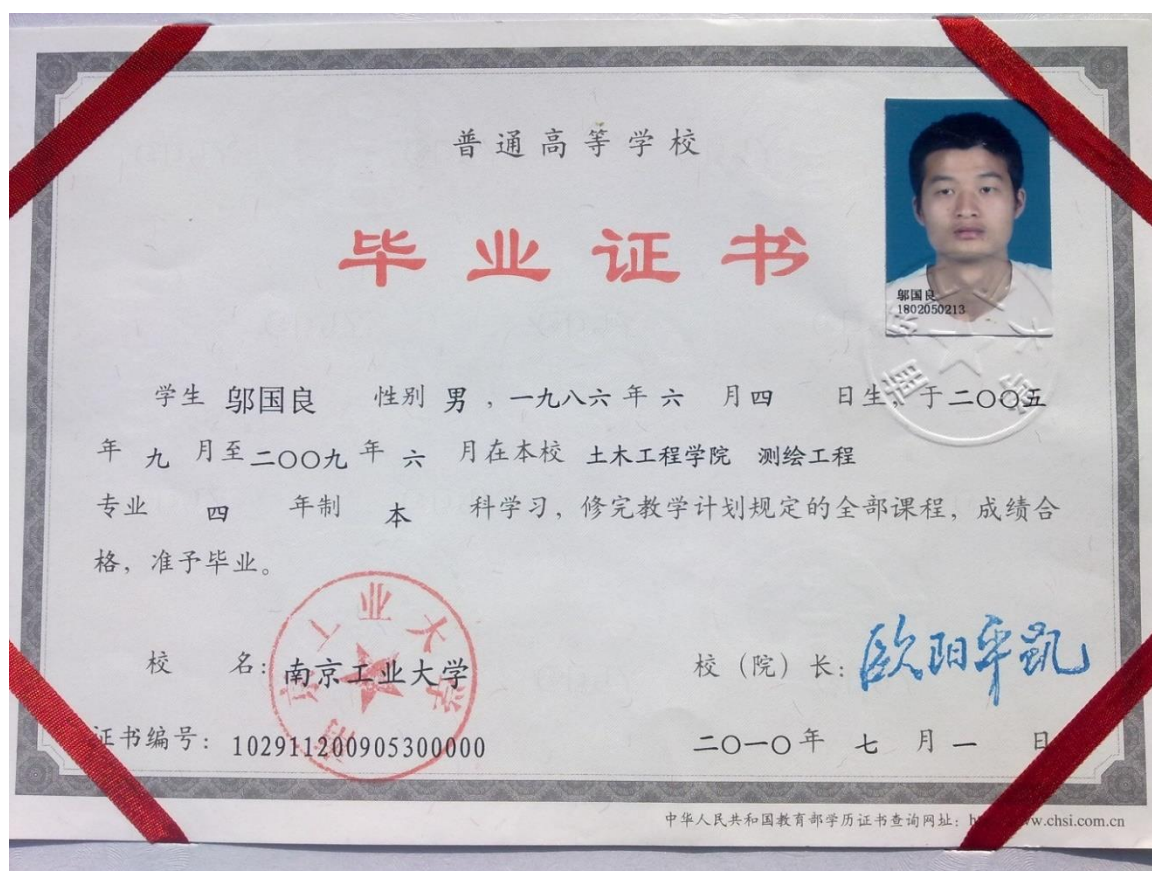 普通高等学校
毕业证书
邬国良
1802050213
学生 邬国良 性别 男 , 一九八六 年 六 月 四 日生, 于 二〇〇五
年 九 月至 二〇〇九 年 六 月在本校 土木工程学院 测绘工程
专业 四 年制 本 科学习, 修完教学计划规定的全部课程, 成绩合
格, 准予毕业。
校 名: 南京工业大学
南京工业大学
校（院）长: 欧阳平凯
证书编号: 102911200905300000
二〇一〇 年 七 月 一 日
中华人民共和国教育部学历证书查询网址: w.chsi.com.cn